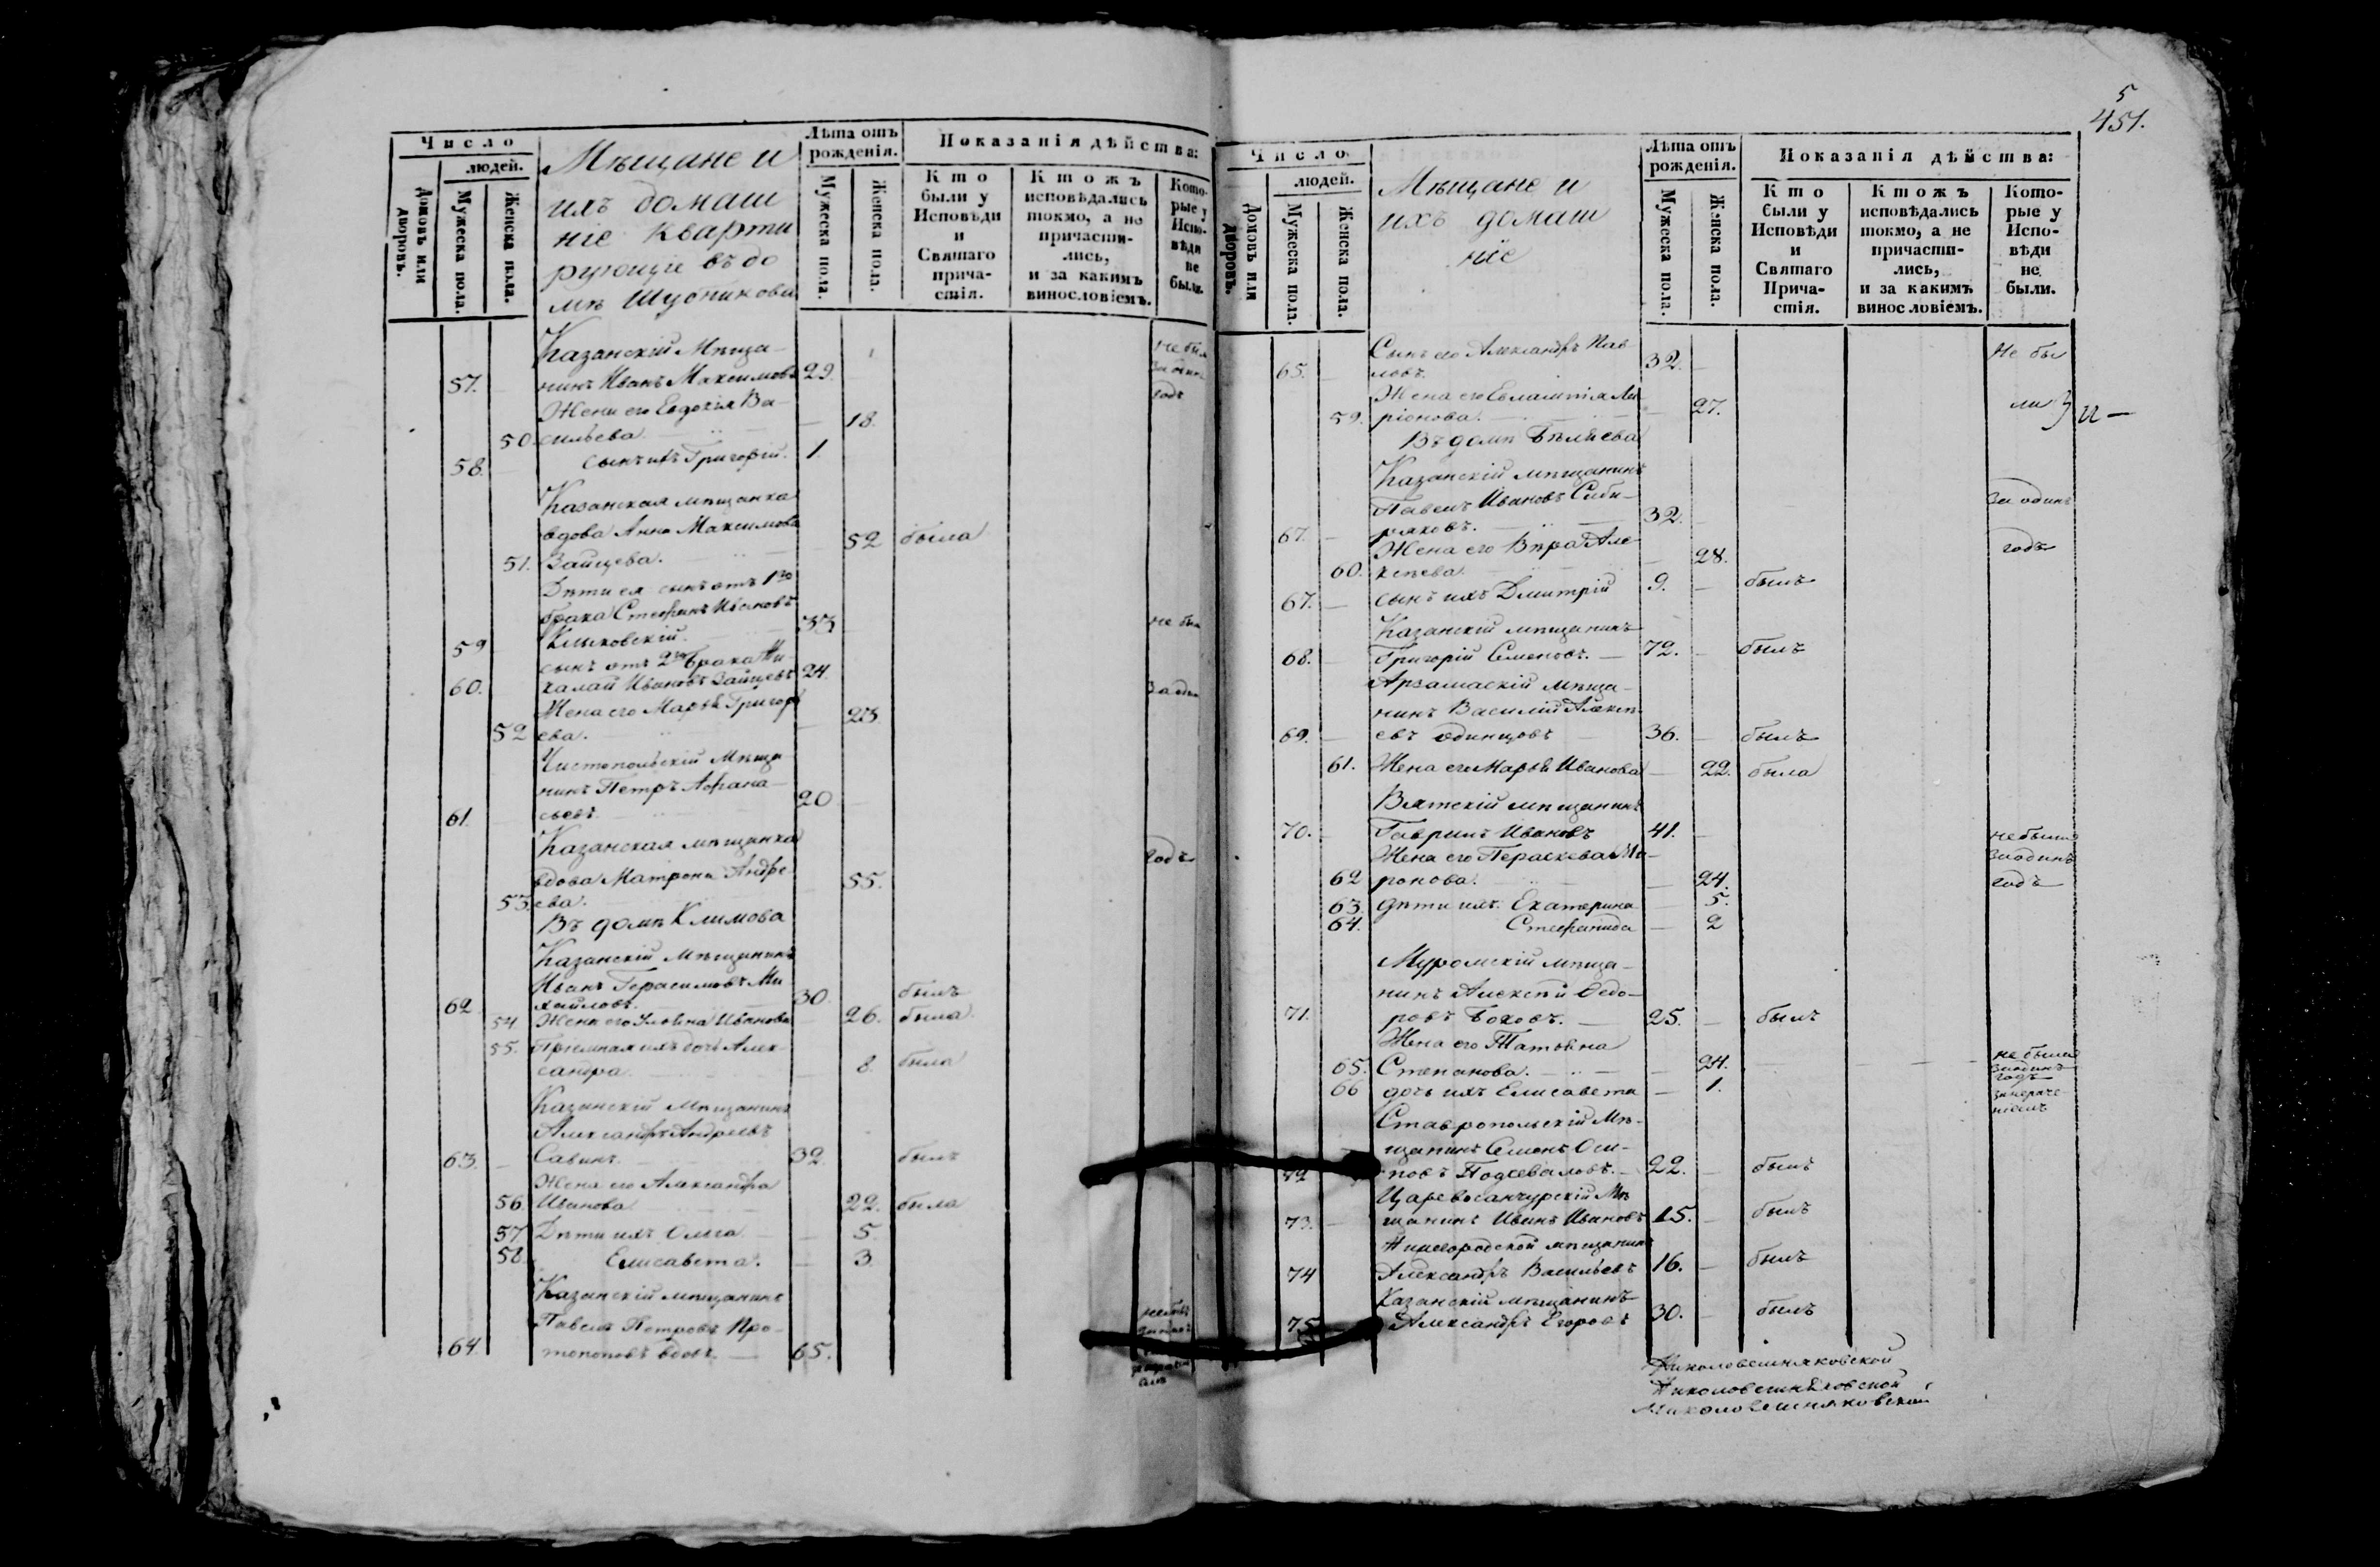 Число
людей.
Домовъ или дворовъ.
Мужеска пола.
Женска пола.
Мѣщане и
ихъ домаш
ніе кварти
рующіе въ до
мѣ Шубникова
Лѣта отъ
рожденія.
Мужеска пола.
Женска пола.
Показанія дѣйства:
Кто
были у
Исповѣди
и
Святаго
прича-
стія.
Ктожъ
исповѣдались
токмо, а не
причасти-
лись,
и за какимъ
винословіемъ.
Кото-
рые у
Испо-
вѣди
не
были.
Казанскій Мѣща-
57. нинъ Иванъ Максимовъ 29.
Жена его Евдокія Ва-
50. сильева 18.
58. сынъ ихъ Григорій. 1.
не был
за один
годъ
Казанская мѣщанка
вдова Анна Максимова
51. Зайцева. 52 была
Дѣти ея сынъ отъ 1го
брака Стефанъ Ивановъ
59 Клыковскій. 33 не бы
сынъ отъ 2го брака Ни-
60. калай Ивановъ Зайцевъ 24. за оди
Жена его Марья Григорь
52 ева. 23
Чистопольскій Мѣща
нинъ Петръ Афана-
61. сьевъ. 20
Казанская мѣщанка годъ
вдова Матрона Андре
53. ева. 55.
Въ домѣ Климова
Казанскій Мѣщанинъ
Иванъ Герасимовъ Ми
62 хайловъ. 30. былъ
54 Жена его Ульяна Иванова 26. была
55. Пріемная ихъ дочь Алек-
сандра 8. была
Казанскій Мѣщанинъ
Александръ Андреевъ
63. Савинъ. 32 былъ
Жена его Александра
56. Иванова 22. была
57 Дѣти ихъ Ольга 5
58. Елисавета. 3.
Казанскій мѣщанинъ
Павелъ Петровъ Про-
64. топоповъ вдовъ. 65.
5
451.
Число
людей.
Домовъ или дворовъ.
Мужеска пола.
Женска пола.
Мѣщане и
ихъ домаш
ніе
Лѣта отъ
рожденія.
Мужеска пола.
Женска пола.
Показанія дѣйства:
Кто
были у
Исповѣди
и
Святаго
Прича-
стія.
Ктожъ
исповѣдались
токмо, а не
причасти-
лись,
и за какимъ
винословіемъ.
Кото-
рые у
Испо-
вѣди
не
были.
Сынъ его Александръ Пав-
65. ловъ. 32. Не бы
Жена его Евлампія Ла
59. ріонова. 27. ли
Въ домѣ Бѣляева
Казанскій мѣщанинъ
Павелъ Ивановъ Сиби- за одинъ
67. ряковъ. 32.
Жена его Вѣра Але-
60. ксѣева. 28. годъ
67. сынъ ихъ Дмитрій 9. былъ
Казанскій мѣщанинъ
68. Григорій Семеновъ. 72. былъ
Арзамаскій мѣща-
нинъ Василій Алексѣ-
69. евъ Одинцовъ 36. былъ
61. Жена его Марья Иванова 22. была
Вятскій мѣщанинъ
70. Гавриилъ Ивановъ 41. не были
Жена его Пераскева Ми- за одинъ
62 ронова. 24. годъ
63. дѣти ихъ: Екатерина 5.
64. Стефанида 2
Муромскій мѣща-
нинъ Алексѣй Ѳедо-
71. ровъ Боковъ. 25. былъ
Жена его Татьяна
65. Степанова. 24. не была
за одинъ
годъ
66 дочь ихъ Елисавета 1.
Ставропольскій Мѣ-
щанинъ Семенъ Оси-
72 повъ Подсеваловъ. 22. былъ
Царевосанчурскій Мѣ
73. щанинъ Иванъ Ивановъ 15. былъ
Нижегородской мѣщанинъ
74 Александръ Васильевъ 16. былъ
Казанскій мѣщанинъ
75 Александръ Егоровъ 30. былъ
Николовешняковской
Николовешняковской
Николовешняковской